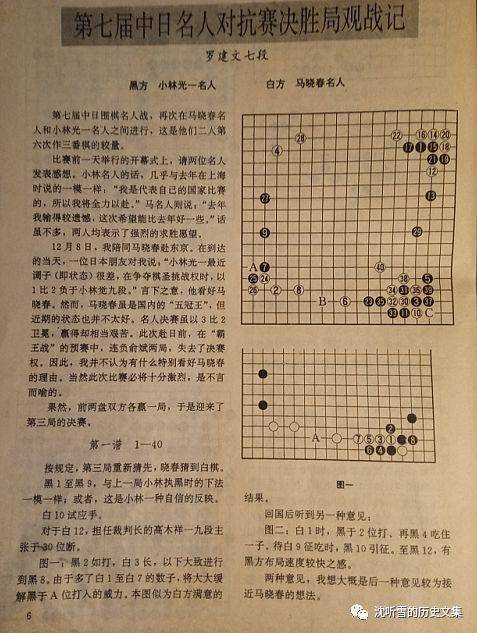 第七届中日名人对抗赛决胜局观战记
罗建文七段
黑方 小林光一名人
白方 马晓春名人
第七届中日围棋名人战，再次在马晓春名
人和小林光一名人之间进行，这是他们二人第
六次作三番棋的较量。
比赛前一天举行的开幕式上，请两位名人
发表感想。小林名人的话，几乎与去年在上海
时说的一模一样：“我是代表自己的国家比赛
的，所以我将全力以赴。”马名人则说：“去年
我输得较遗憾，这次希望能比去年好一些。”话
虽不多，两人均表示了强烈的求胜愿望。
12月8日，我陪同马晓春赴东京。在到达
的当天，一位日本朋友对我说：“小林光一最近
调子（即状态）很差，在争夺棋圣挑战权时，以
1比2负于小林觉九段。”言下之意，他看好马
晓春。然而，马晓春虽是国内的“五冠王”，但
近期的状态也并不太好。名人决赛虽以3比2
卫冕，赢得却相当艰苦。此次赴日前，在“霸
王战”的预赛中，连负俞斌两局，失去了决赛
权。因此，我并不认为有什么特别看好马晓春
的理由。当然此次比赛必将十分激烈，是不言
而喻的。
果然，前两盘双方各赢一局，于是迎来了
第三局的决赛。
第一谱 1—40
按规定，第三局重新猜先，晓春猜到白棋。
黑1至黑9，与上一局小林执黑时的下法
一模一样；或者，这是小林一种自信的反映。
白10试应手。
对于白12，担任裁判长的高木祥一九段主
张于30位断。
图一，黑2如打，白3长，以下大致进行
到黑8。由于多了白1至白7的数子，将大大缓
解黑于A位打入的威力。本图似为白方满意的
6
㉘
㉒
⑯
⑭
⑳
④
⑰
1
⑮
⑱
㉑
⑲
⑫
㉗
⑬
9
㉙
A
7
㊵
㉕
㉔
㊳
5
㉖
②
⑧
㉞
㉛
㊱
㊴
B
⑥
㉓
㉟
㉜
㉚
3
㊲
㉝
⑪
⑩
C
2
A
⑦
⑤
③
①
8
6
4
图一
结果。
回国后听到另一种意见：
图二：白1时，黑于2位打、再黑4吃住
一子。待白9征吃时，黑10引征。至黑12，有
黑方布局速度较快之感。
两种意见，我想大概是后一种意见较为接
近马晓春的想法。
沈听雪的历史文集